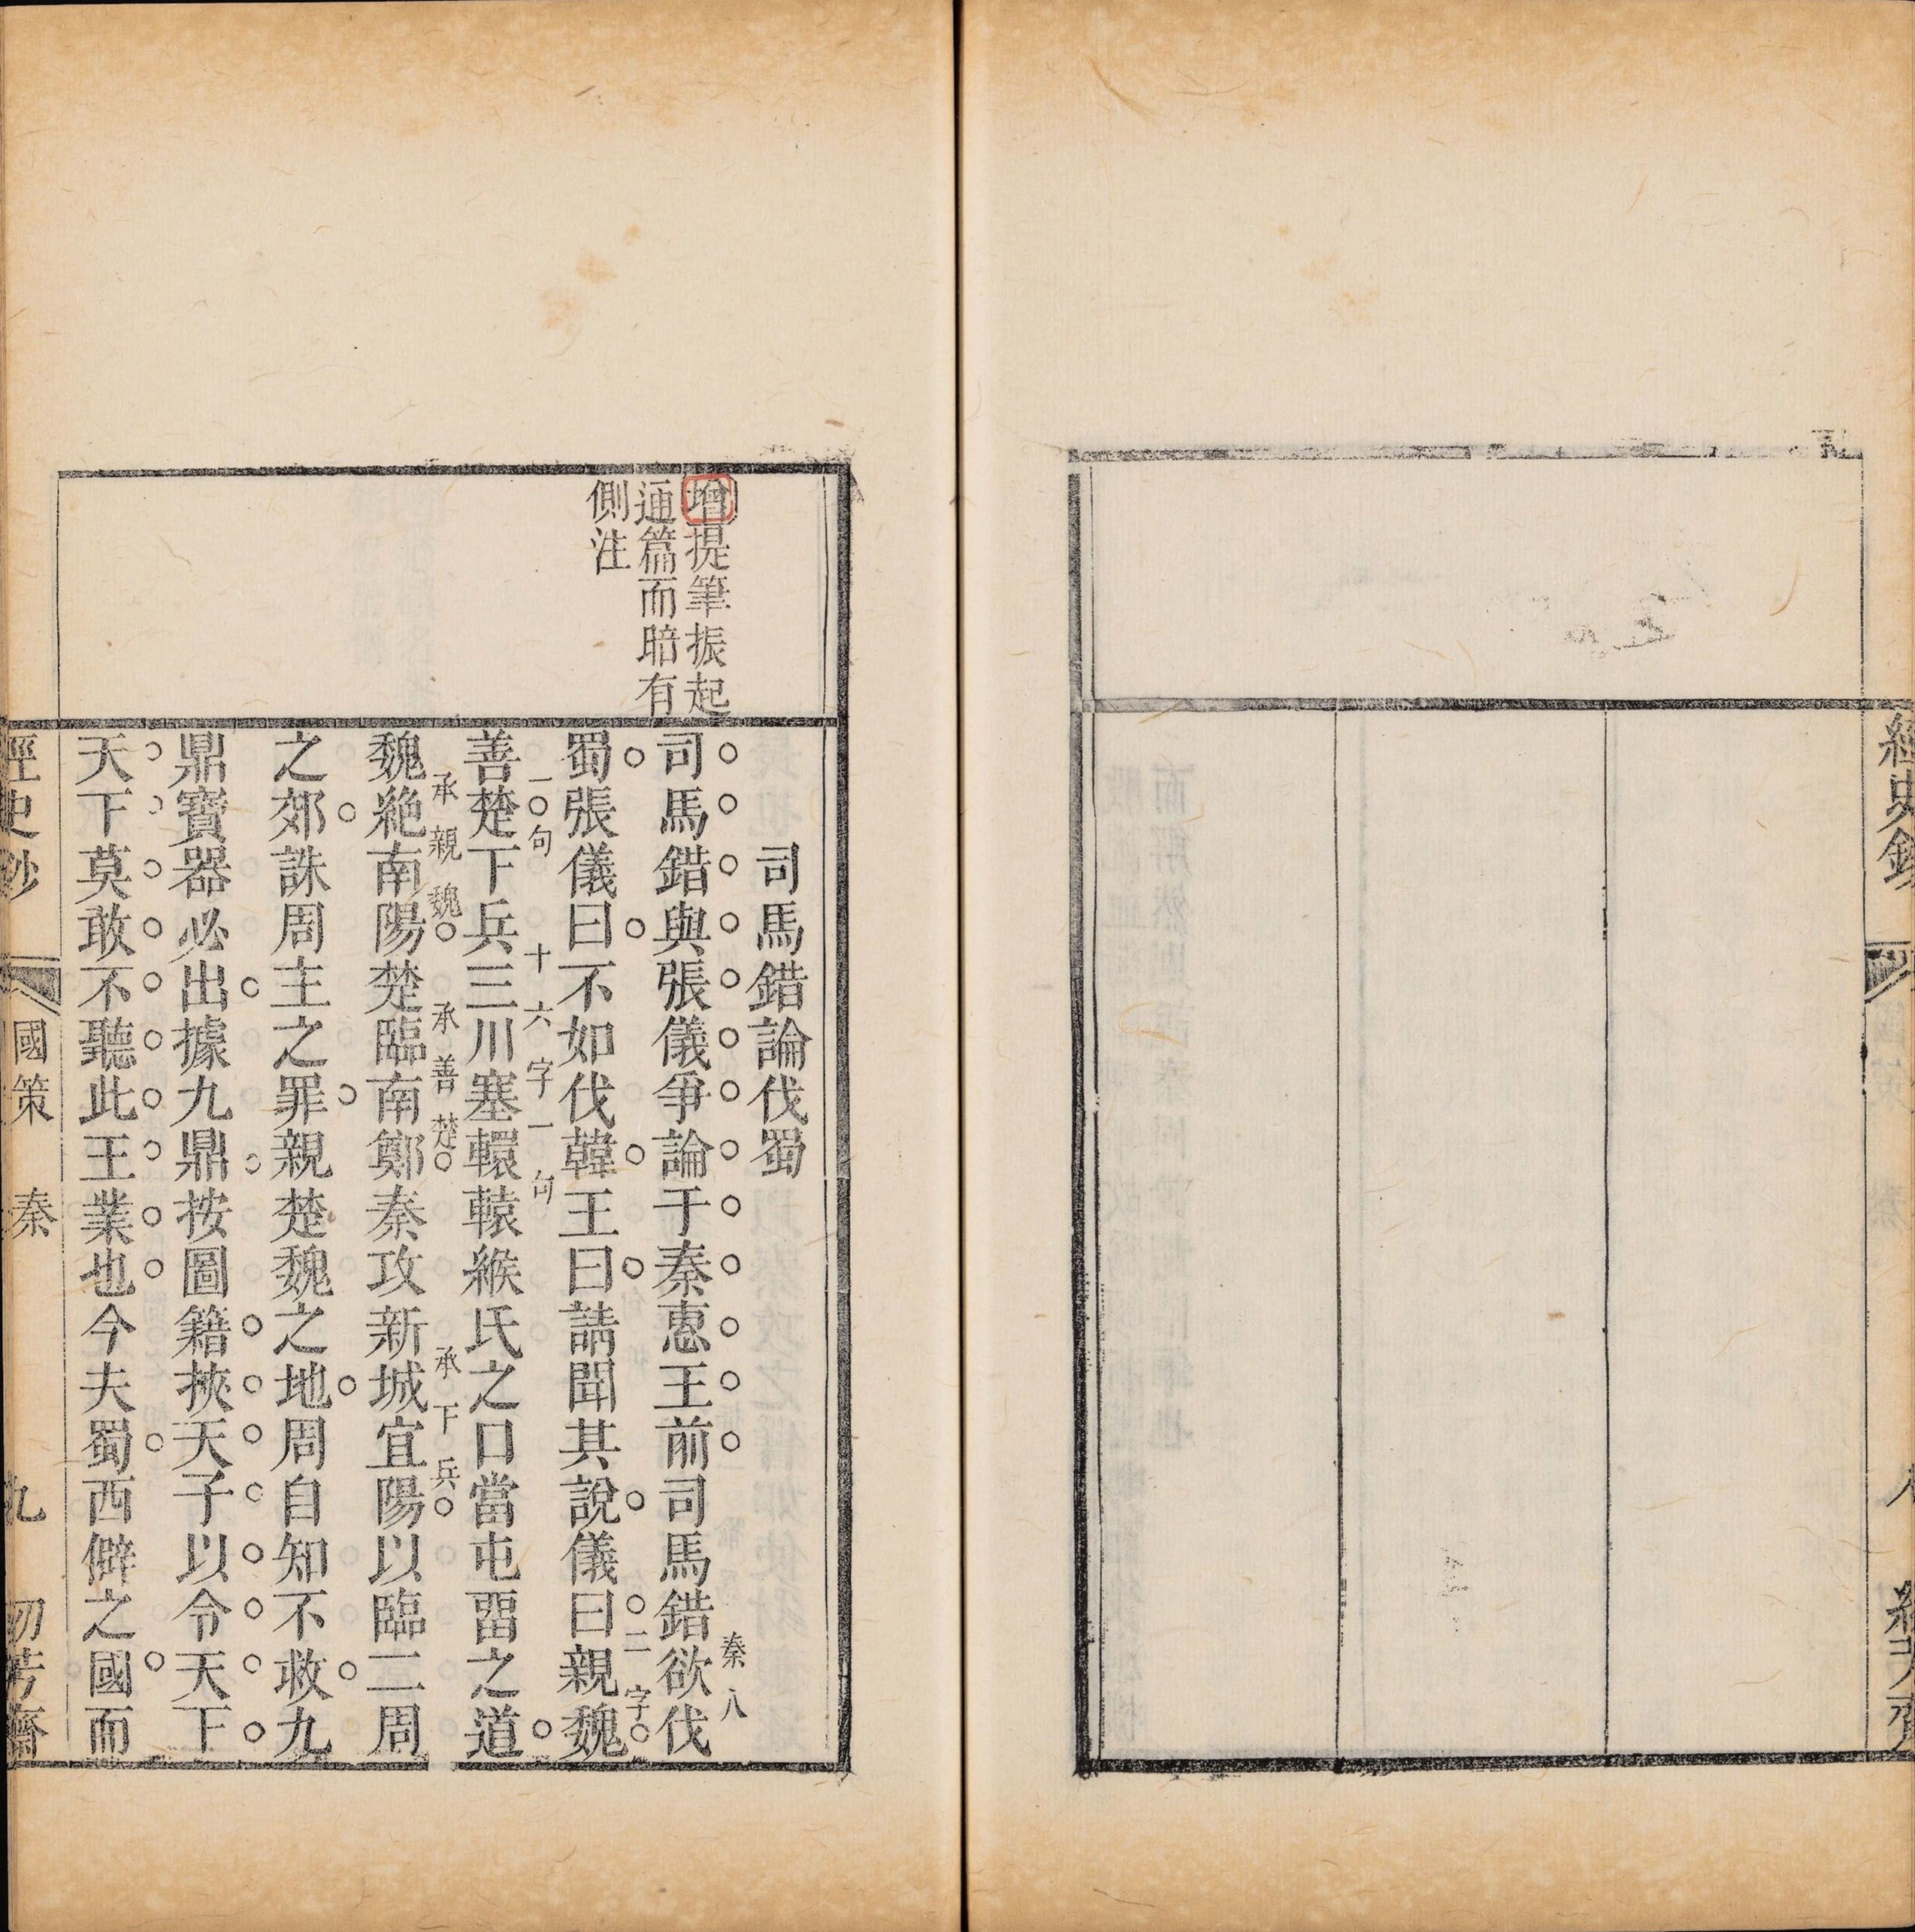 增提筆振起
通篇而暗有
側注
司馬錯論伐蜀
司馬錯與張儀爭論于秦惠王前司馬錯欲伐
秦八
蜀張儀曰不如伐韓王曰請聞其說儀曰親魏
二字
善楚下兵三川塞轘轅緱氏之口當屯留之道
一句 十六字一句
魏絶南陽楚臨南鄭秦攻新城宜陽以臨二周
承親魏 承善楚 承下兵
之郊誅周主之罪親楚魏之地周自知不救九
鼎寶器必出據九鼎按圖籍挾天子以令天下
天下莫敢不聽此王業也今夫蜀西僻之國而
經史鈔 國策 秦 九 初芳齋